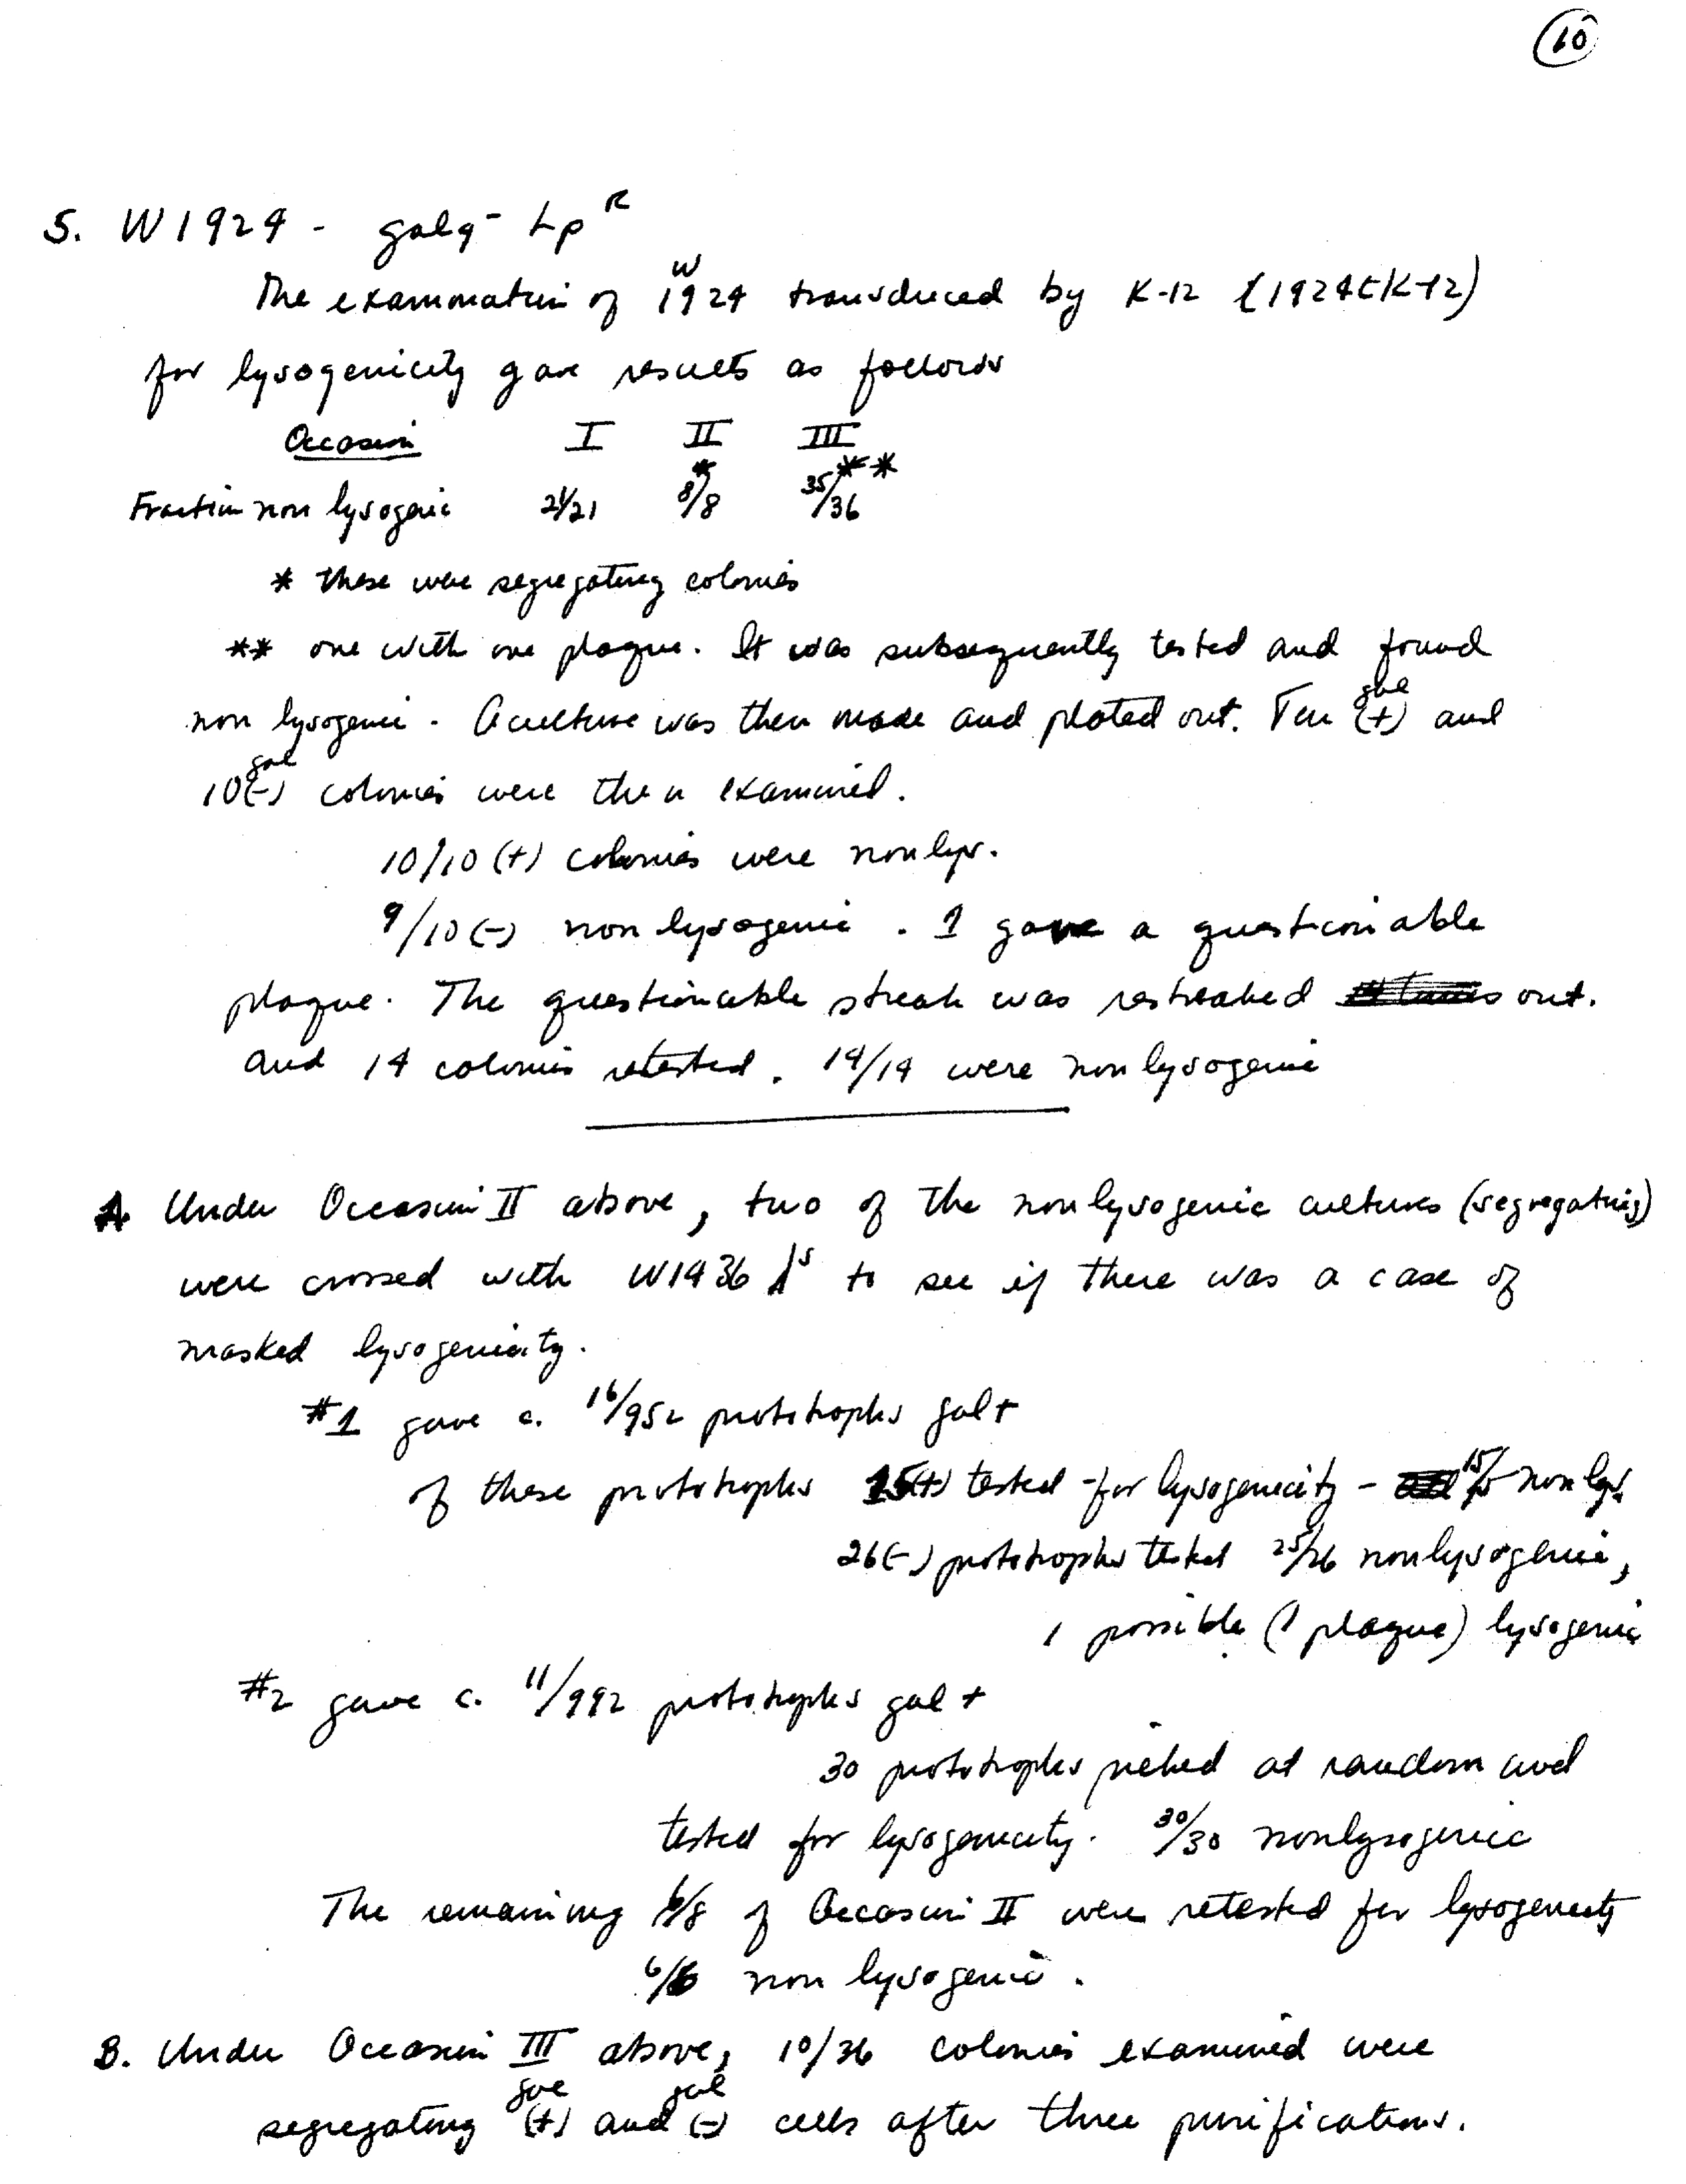 60
5. W1924 - gal4- Lp R
The examination of W1924 transduced by K-12 (1924 (K-12)
for lysogenicity gave results as follows
Occasion I II III
Fraction non lysogenic 21/21 8/8* 35/36**
* these were segregating colonies
** one with one plaque. It was subsequently tested and found
non lysogenic. A culture was then made and plated out. Ten gal (+) and
10 gal (-) colonies were then examined.
10/10 (+) colonies were nonlys.
9/10 (-) non lysogenic. 1 gave a questionable
plaque. The questionable streak was restreaked out.
and 14 colonies retested. 14/14 were nonlysogenic
A Under Occasion II above, two of the nonlysogenic cultures (segregating)
were crossed with W1436 λs to see if there was a case of
masked lysogenicity.
#1 gave c. 16/952 prototrophs gal+
of these prototrophs 15(+) tested for lysogenicity - 15/15 nonlys.
26(-) prototrophs tested 25/26 nonlysogenic,
1 possible (1 plaque) lysogenic
#2 gave c. 11/992 prototrophs gal+
30 prototrophs picked at random and
tested for lysogenicity. 30/30 nonlysogenic
The remaining 6/8 of Occasion II were retested for lysogenicity
6/6 non lysogenic.
B. Under Occasion III above, 10/36 colonies examined were
segregating gal (+) and gal (-) cells after three purifications.